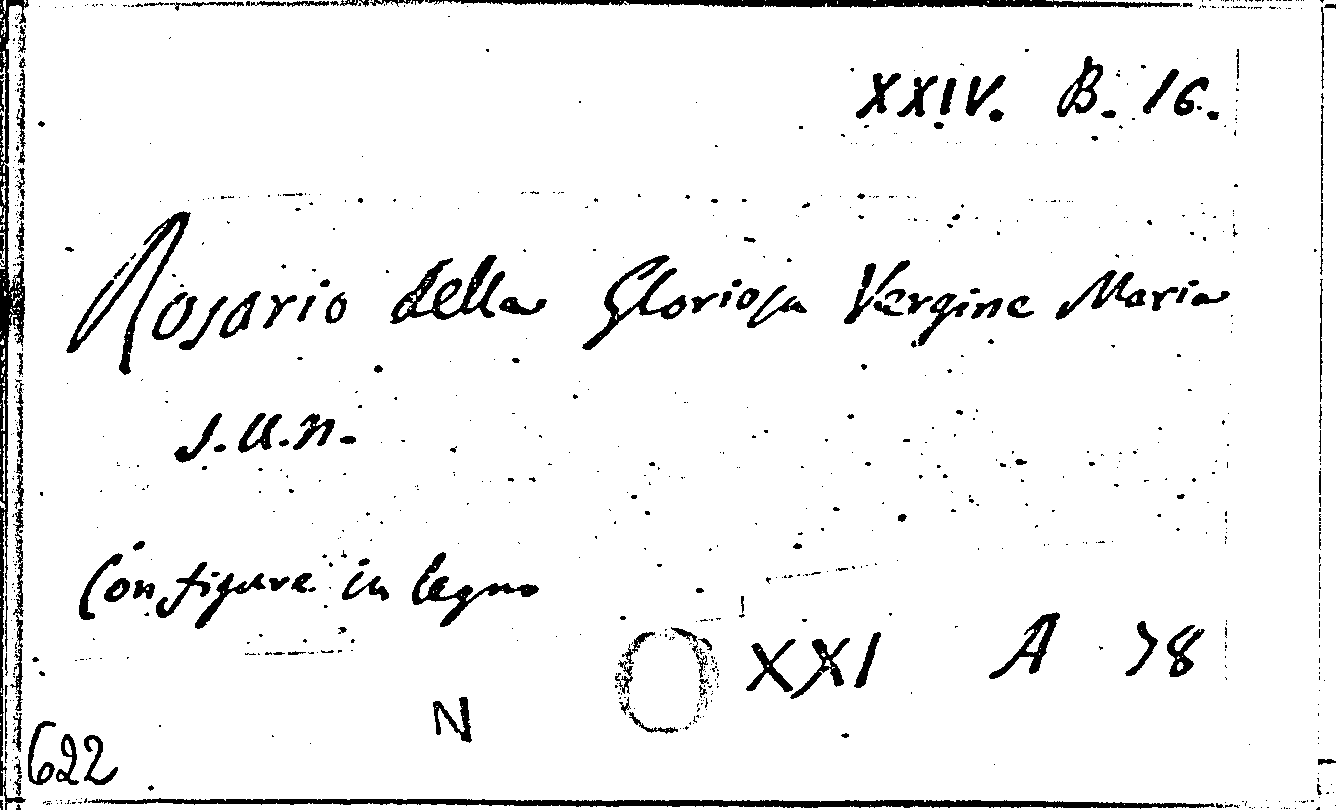 XXIV. B. 16.
Rosario della Gloriosa Vergine Maria
S.U.N.
Con figure in legno
XXI A 78
N
622